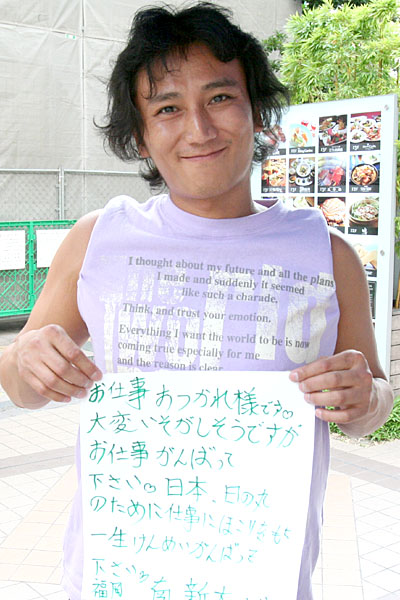 I thought about my future and all the plans
I made and suddenly it seemed
like such a charade.
Think, and trust your emotion.
Everything I want the world to be is now
coming true especially for me
and the reason is clear
お仕事おつかれ様です♡
大変いそがしそうですが
お仕事がんばって
下さい♡日本、日の丸
のために仕事にほこりをもち
一生けんめいがんばって
下さい
福岡 南 新